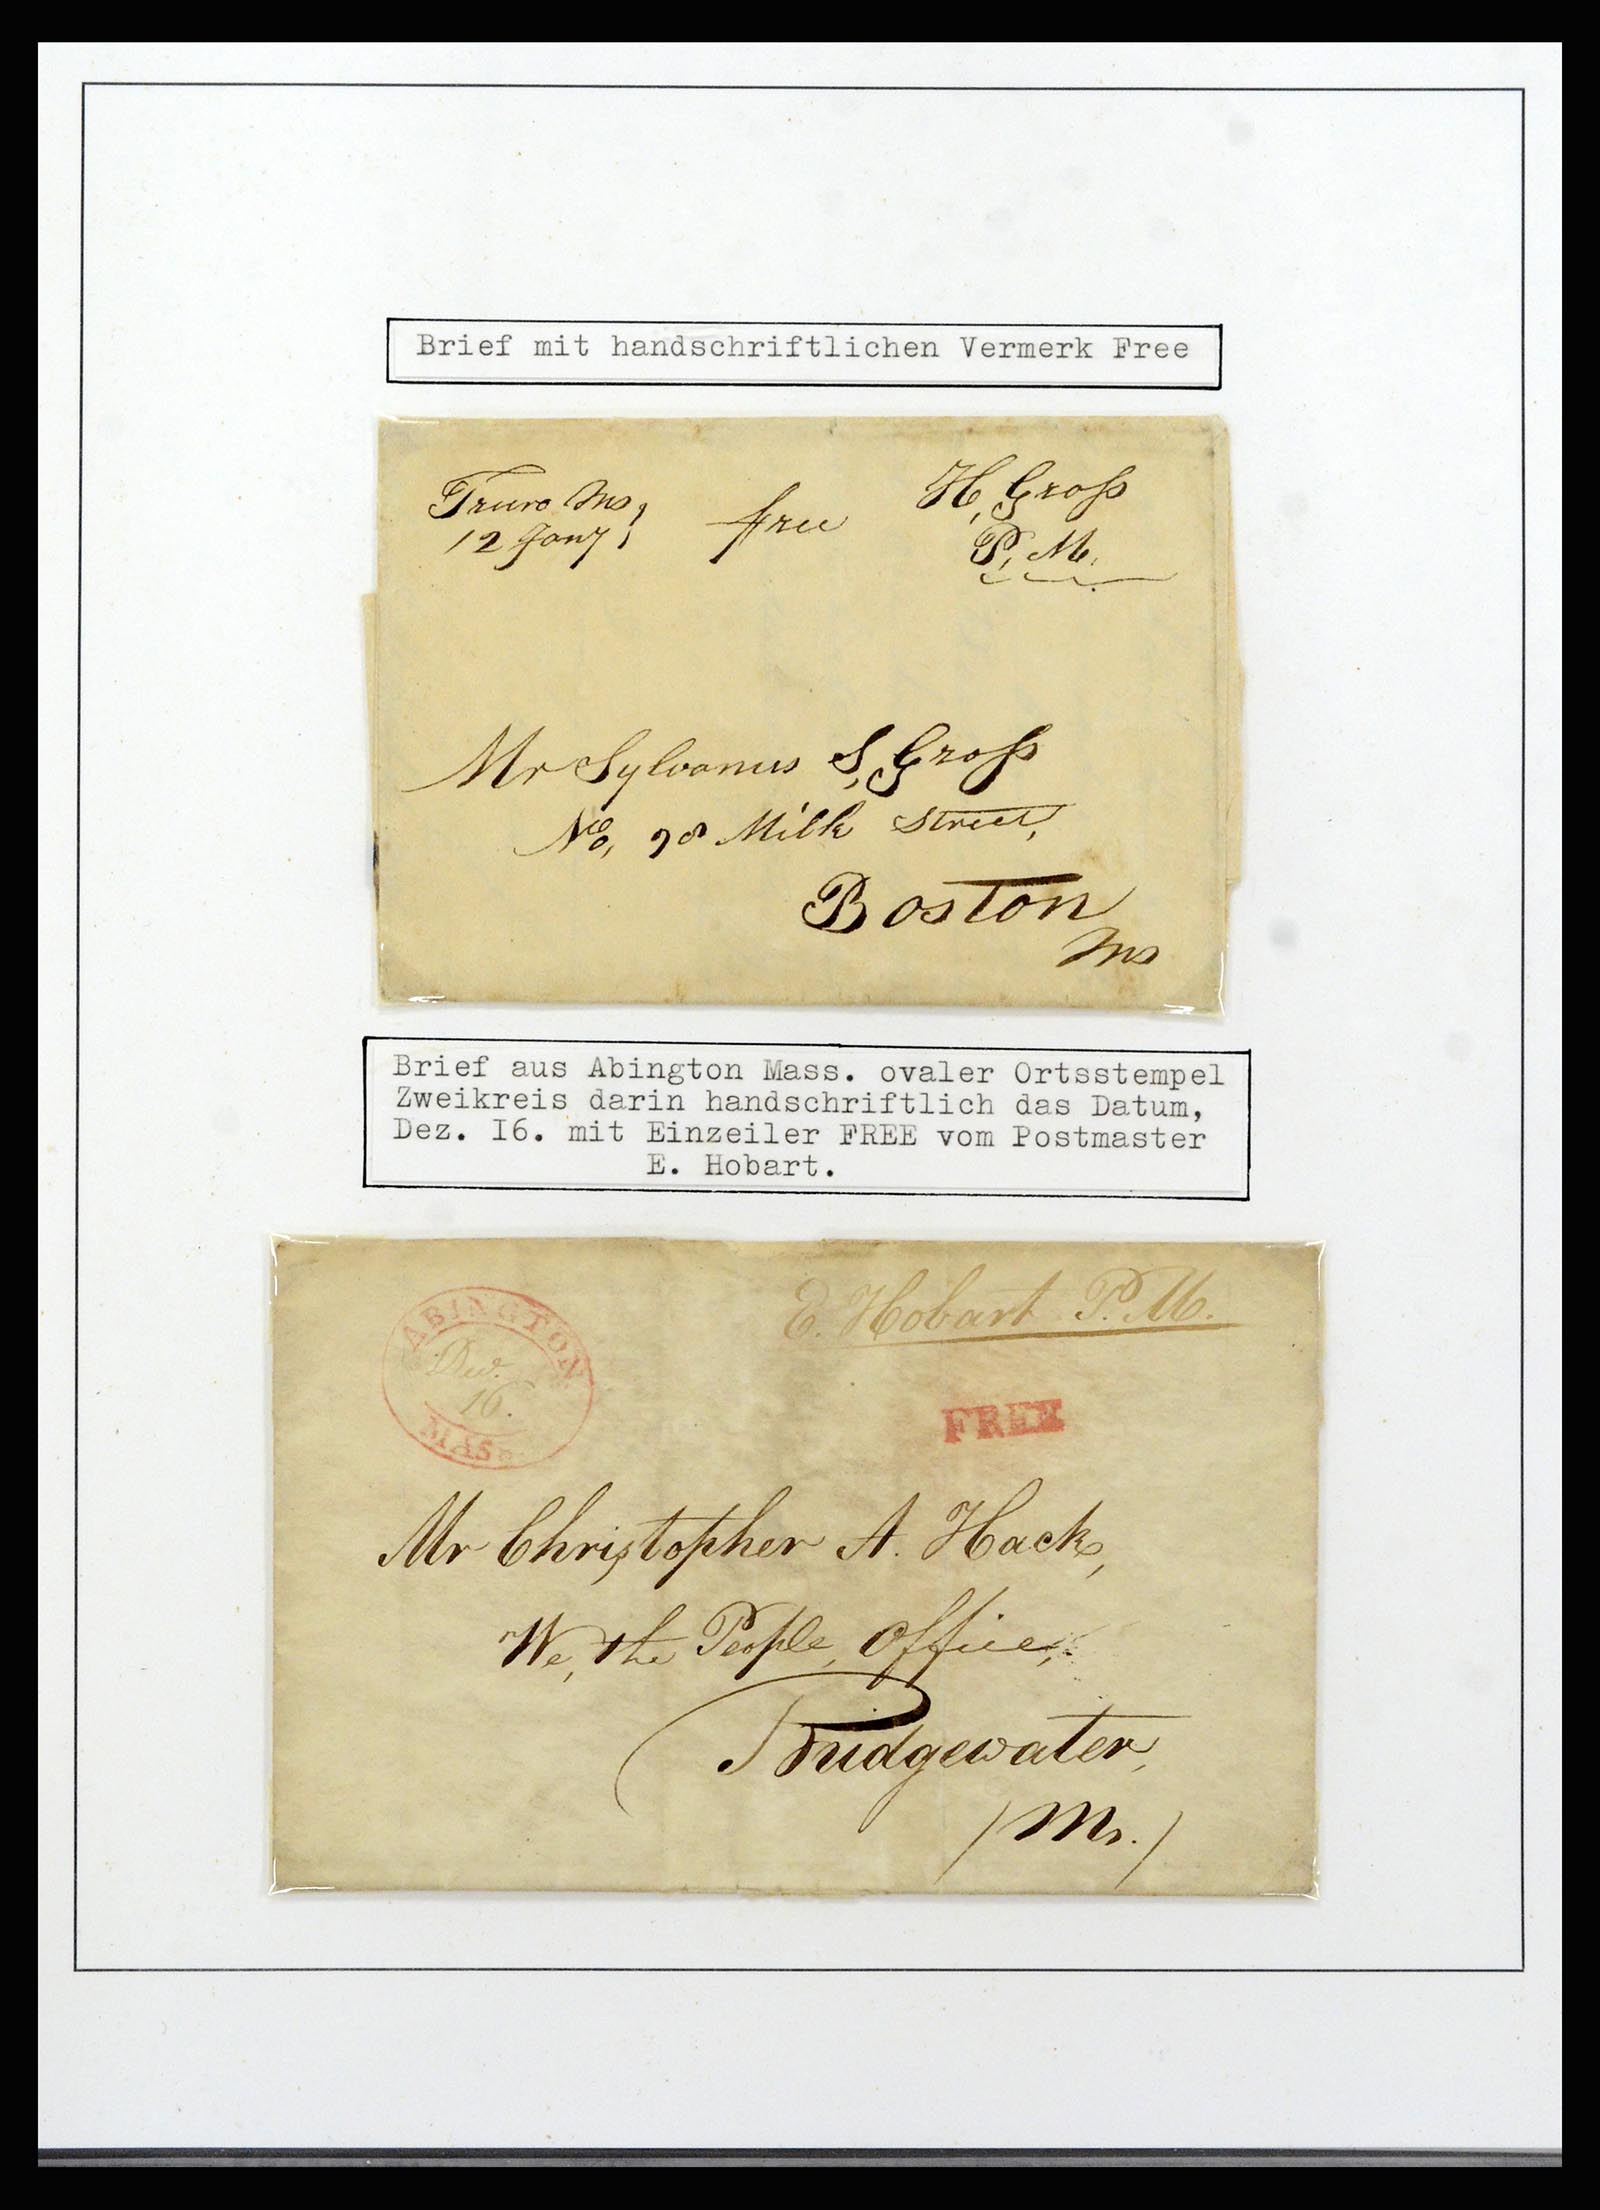 Brief mit handschriftlichen Vermerk Free
Truro Ms
12 Jany
free
H, Gross
P, M,
Mr Sylvanus S, Gross
No, 98 Milk Street,
Boston
Ms
Brief aus Abington Mass. ovaler Ortsstempel
Zweikreis darin handschriftlich das Datum,
Dez. I6. mit Einzeiler FREE vom Postmaster
E. Hobart.
ABINGTON
Dec.
16.
MASS
E. Hobart P. M.
FREE
Mr Christopher A. Hack,
We, the People, Office,
Bridgewater,
/Ms./